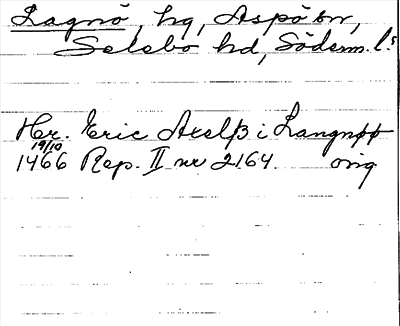 Lagnö, hg, Aspö sn,
Selebo hd, Söderm. l:s
Hr. Eric Axelß i Langnøø
19/10
1466 Rep. II nr 2164. orig